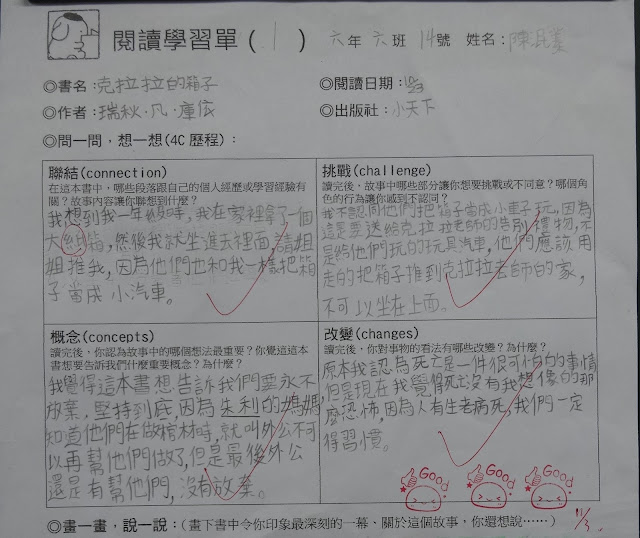 閱讀學習單(1) 六年六班14號 姓名:陳
◎書名:克拉拉的箱子 ◎閱讀日期:
◎作者:瑞秋·凡·庫依 ◎出版社:小天下
◎問一問,想一想(4C歷程):
聯結(connection)
在這本書中,哪些段落跟自己的個人經歷或學習經驗有
關?故事內容讓你聯想到什麼?
我想到我一年級時,我在家裡拿了一個
大紙箱,然後我就坐進去裡面,請姐
姐推我,因為他們也和我一樣把箱
子當成小汽車。
挑戰(challenge)
讀完後,故事中哪些部分讓你想要挑戰或不同意?哪個角
色的行為讓你感到不認同?
我不認同他們把箱子當成小車子玩,因為
這是要送給克拉拉老師的告別禮物,不
是給他們玩的玩具汽車,他們應該用
走的把箱子推到克拉拉老師的家,
不可以坐在上面。
概念(concepts)
讀完後,你認為故事中的哪個想法最重要?你覺這這本
書想要告訴我們什麼重要概念?為什麼?
我覺得這本書想告訴我們要永不
放棄,堅持到底,因為朱利的媽媽
知道他們在做棺材時,就叫外公不可
以再幫他們做了,但是最後外公
還是有幫他們,沒有放棄。
改變(changes)
讀完後,你對事物的看法有哪些改變?為什麼?
原本我認為死亡是一件很可怕的事情
但是現在我覺得死亡沒有我想像的那
麼恐怖,因為人有生老病死,我們一定
得習慣。
GOOD GOOD GOOD
11/3
◎畫一畫,說一說:(畫下書中令你印象最深刻的一幕、關於這個故事,你還想說……)